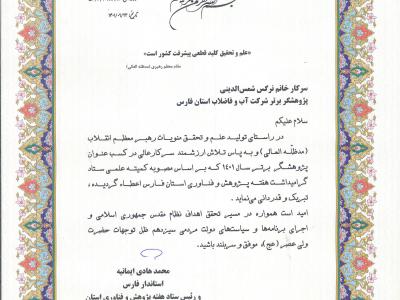 تاریخ: ۱۴۰۱/۰۹/۲۳
«علم و تحقیق کلید قطعی پیشرفت کشور است»
مقام معظم رهبری (مدظله العالی)
سرکار خانم نرگس شمس‌الدینی
پژوهشگر برتر شرکت آب و فاضلاب استان فارس
سلام علیکم
در راستای تولید علم و تحقق منویات رهبر معظم انقلاب
(مدظلّه العالی) و به پاس تلاش ارزشمند سرکارعالی در کسب عنوان
پژوهشگر برتر سال ۱۴۰۱ که بر اساس مصوبه کمیته علمی ستاد
گرامیداشت هفته پژوهش و فناوری استان فارس اعطاء گردیده،
تبریک و قدردانی می‌نماید.
امید است همواره در مسیر تحقق اهداف نظام مقدس جمهوری اسلامی و
اجرای برنامه‌ها و سیاست‌های دولت مردمی سیزدهم ظل توجهات حضرت
ولی عصر (عج)، موفق و سربلند باشید.
محمد هادی ایمانیه
استاندار فارس
و رئیس ستاد هفته پژوهش و فناوری استان